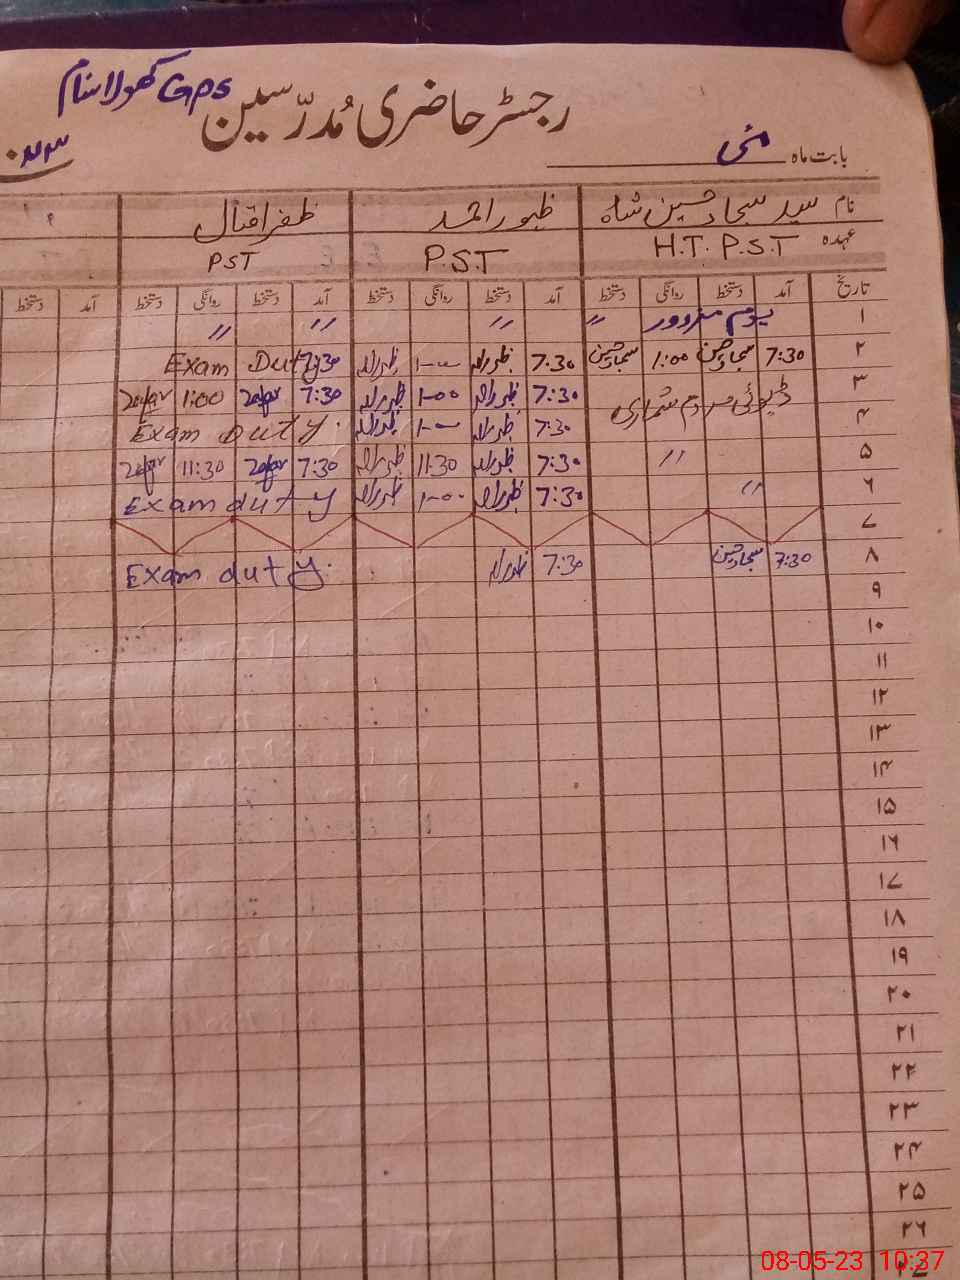 GPS کھولا سنام
رجسٹر حاضری مُدرّسین
بابت ماہ مئی
نام سید سجاد حسین شاہ ظہور احمد ظفر اقبال
عہدہ H.T. P.S.T P.S.T PST
تاریخ آمد دستخط روانگی دستخط آمد دستخط روانگی دستخط آمد دستخط روانگی دستخط آمد دستخط
۱ یوم مزدور 〃 〃 〃 〃
۲ 7:30 سجاد حسین 1:00 سجاد حسین 7:30 1-00 7:30 Exam Duty
۳ ڈیوٹی مردم شماری 7:30 1-00 7:30 Zafar 1:00 Zafar
۴ 7:30 1-00 Exam Duty.
۵ 〃 7:30 11:30 7:30 Zafar 11:30 Zafar
۶ 〃 7:30 1-00 Exam duty
۷
۸ 7:30 سجاد حسین 7:30 Exam duty.
۹
۱۰
۱۱
۱۲
۱۳
۱۴
۱۵
۱۶
۱۷
۱۸
۱۹
۲۰
۲۱
۲۲
۲۳
۲۴
۲۵
۲۶
۲۷
08-05-23 10:37